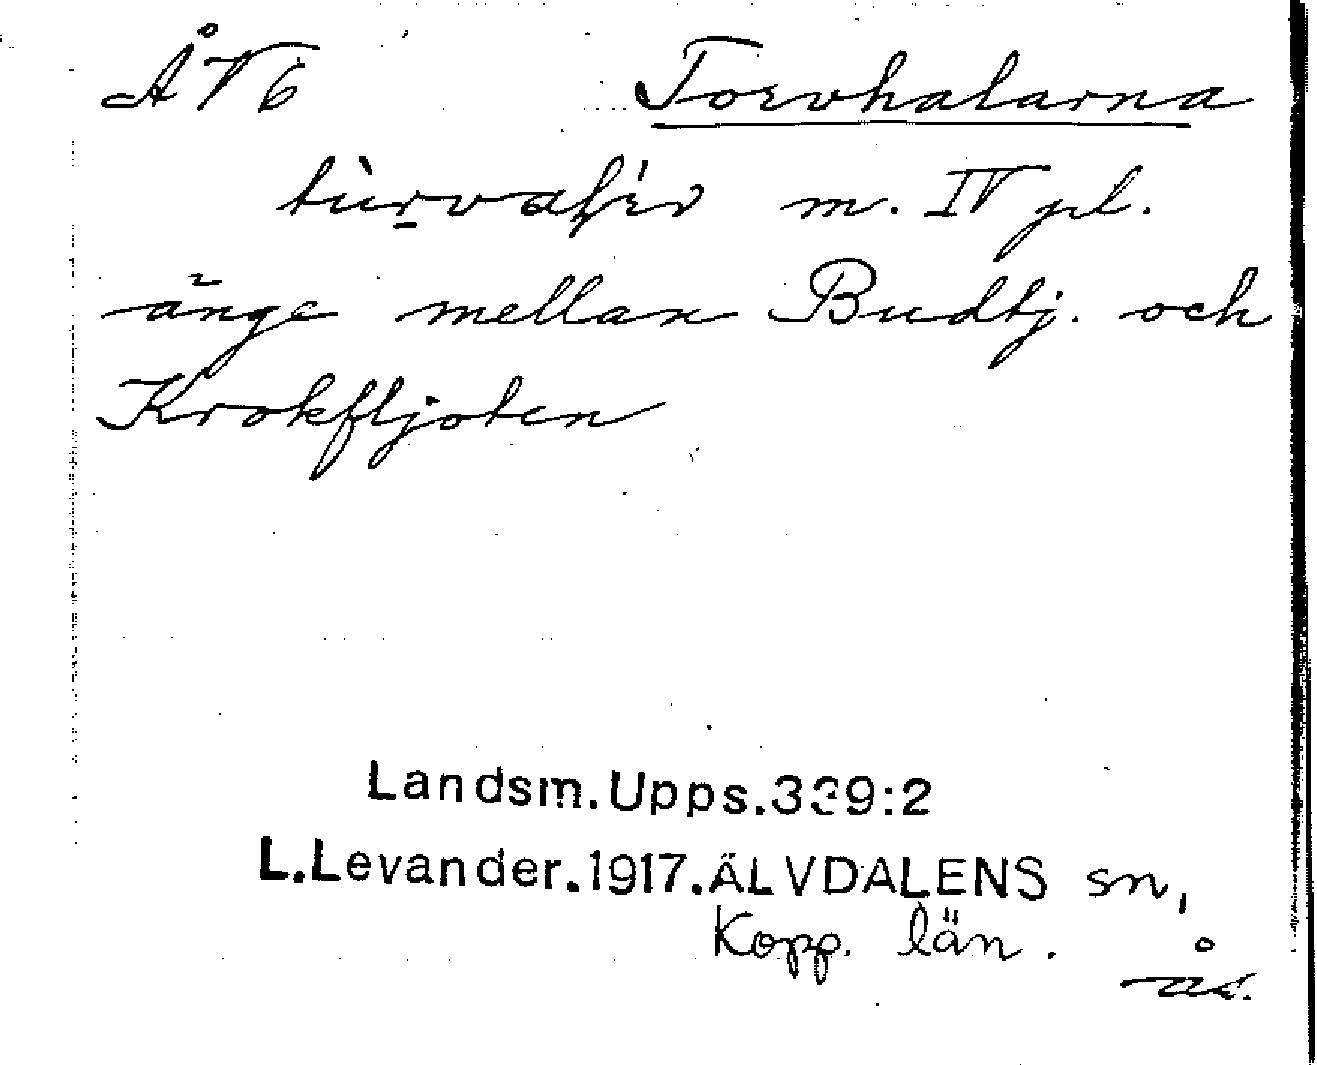 ÅV6 Torvhalarna
m. IV pl.
änge mellan Budtj. och
Krokfljoten
Landsm.Upps.339:2
L.Levander.1917.ÄLVDALENS sn,
Kopp. län.